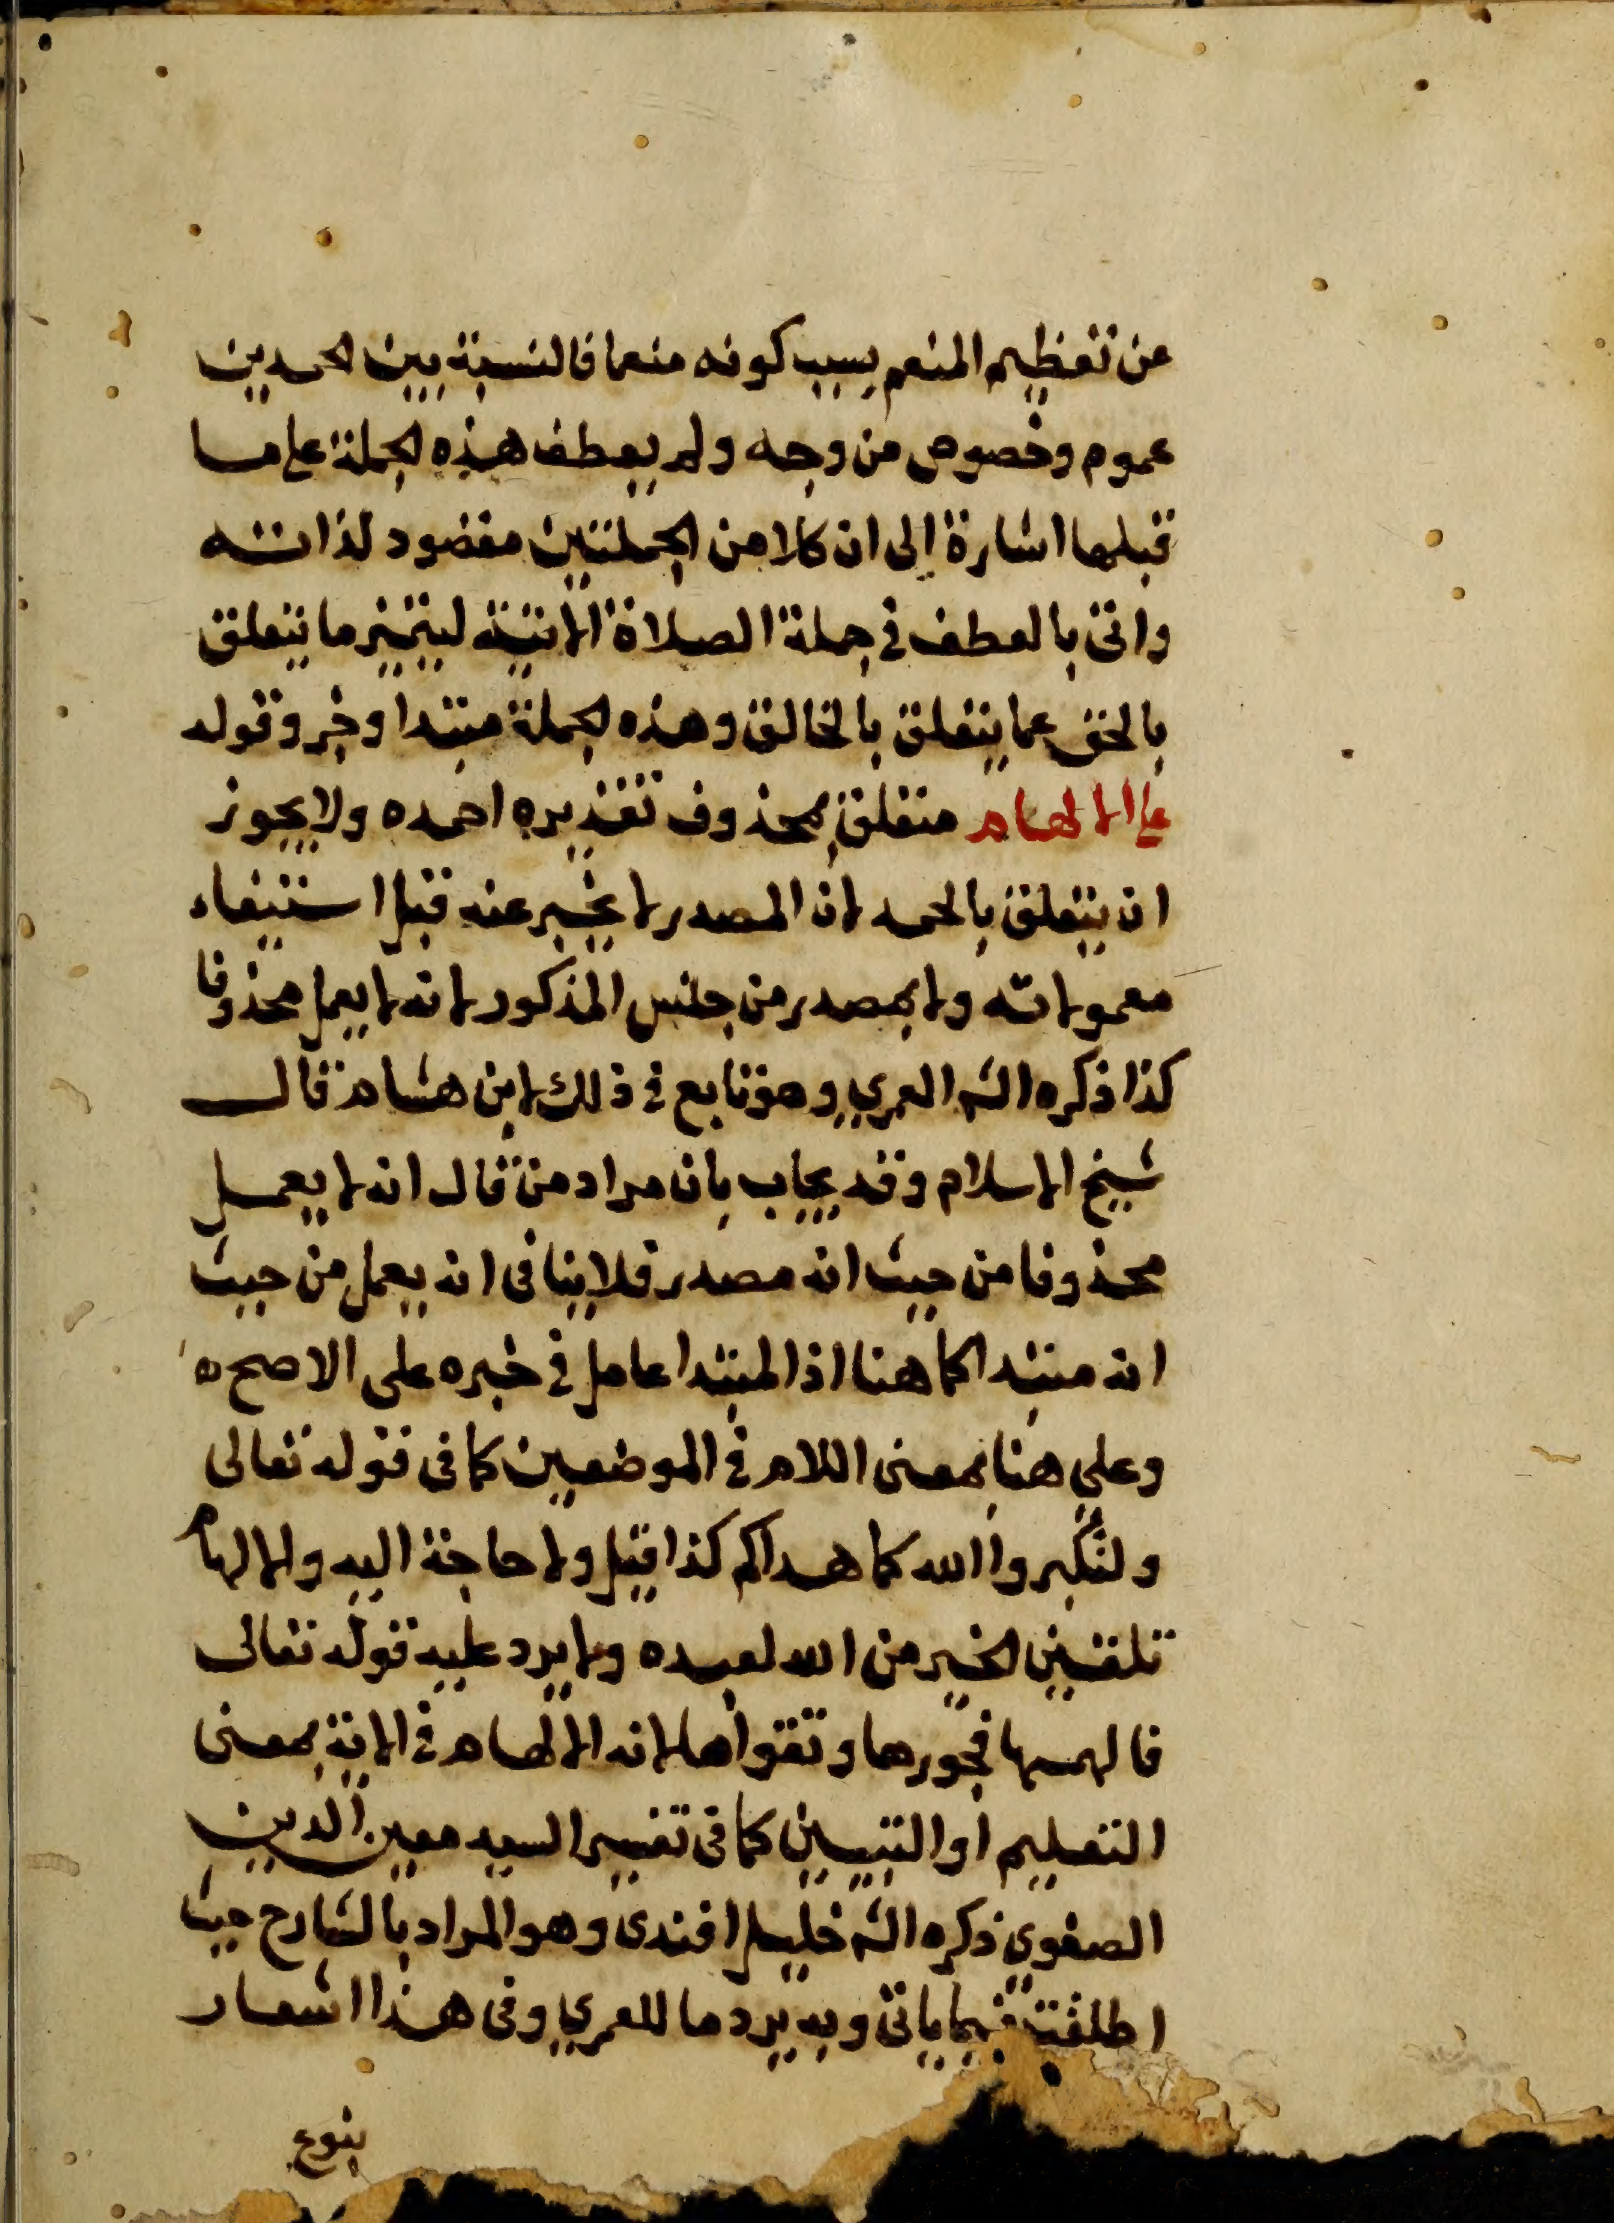 عن تعظيم المنعم بسبب كونه منعما فالنسبة بين الحمدين
عموم وخصوص من وجه ولم يعطف هذه الجملة على ما
قبلها اشارة إلى ان كلا من الجملتين مقصود لذاته
واتى بالعطف في جملة الصلاة الاتية ليتميز ما يتعلق
بالخق عما يتعلق بالخالق وهذه الجملة مبتدا وخبر وقوله
على الالهام متعلق بمحذوف تقديره احمده ولا يجوز
ان يتعلق بالحمد لان المصدر لا يخبر عنه قبل استيفاء
معمولاته ولا بمصدر من جنس المذكور لانه لا يعمل محذوفا
كذا ذكره الشہ العمري وهو تابع في ذلك لابن هشام قال
شيخ الاسلام وقد يجاب بان مراد من قال انه لا يعمل
محذوفا من حيث انه مصدر فلا ينافى انه يعمل من حيث
انه مبتدا كما هنا اذ المبتدا عامل في خبره على الاصح ه
وعلي هنا بمعنى اللام في الموضعين كما فى قوله تعالى
ولتُكبروا الله كما هداكم كذا قيل ولا حاجة اليه والالهام
تلقين الخير من الله لعبده ولا يرد عليه قوله تعالى
فالهمها فجورها وتقواها لانه الالهام في الاية بمعنى
التعليم او التبيين كما فى تفسير السيد معين الدين
الصفوي ذكره الشہ خليل افندى وهو المراد بالشارح حيث
اطلقته فيما ياتى وبه يرد ما للعمري وفى هذا اشعار
بنوع